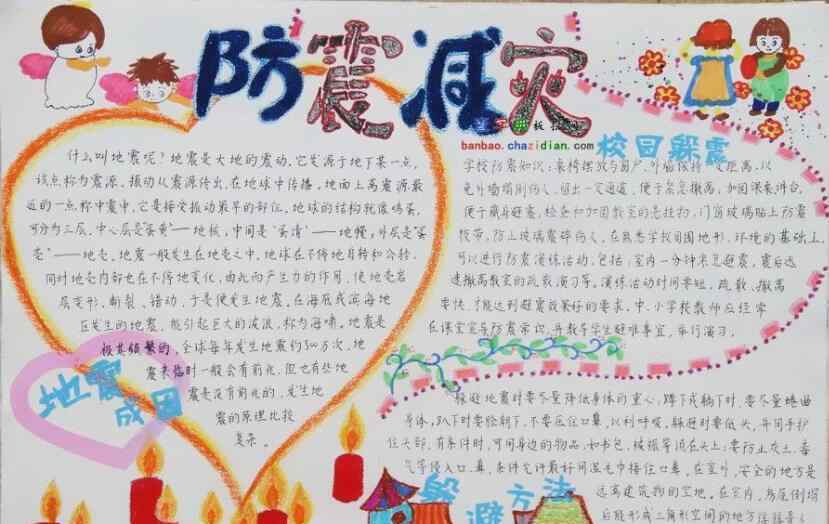 防震减灾
banbao.chazidian.com
什么叫地震呢?地震是大地的震动,它发源于地下某一点,
该点称为震源。振动从震源传出,在地球中传播。地面上离震源最
近的一点称中震中,它是接受振动最早的部位。地球的结构就像鸡蛋,
可分为三层。中心层是"蛋黄"——地核,中间是"蛋清"——地幔,外层是"蛋
壳"——地壳。地震一般发生在地壳之中,地球在不停地自转和公转,
同时地壳内部也在不停地变化,由此而产生力的作用,使地壳岩
层变形、断裂、错动,于是便发生地震。在海底或滨海地
区发生的地震,能引起巨大的波浪,称为海啸。地震是
极其频繁的,全球每年发生地震约500万次,地
震来临时一般会有前兆,但也有些地
震是没有前兆的,发生地
震的原理比较
复杂。
地震
成因
校园躲震
学校防震知识:桌椅摆放与窗户、外墙保持一定距离,以
免外墙塌倒伤人,留出一定通道,便于紧急撤离,加固课桌讲台,
便于藏身避震,检查和加固教室的悬挂物,门窗玻璃贴上防震
胶带,防止玻璃震碎伤人,在熟悉学校周围地形,环境的基础上
可以进行防震演练活动,包括:室内一分钟紧急避震,震后迅
速撤离教室的疏散演习等。演练活动时间要短,疏散、撤离
要快,才能达到避震效果好的要求。中、小学校教师应经常
在课堂宣导防震常识,并教导学生避难事宜,举行演习。
躲避地震时要尽量降低身体的重心,蹲下或躺下时,要尽量蜷曲
身体,趴下时要脸朝下,不要压住口鼻,以利呼吸,躲避时要低头,并用手护
住头部,有条件时,可用身边的物品,如书包,被褥等顶在头上;要防止灰土、毒
气等侵入口、鼻,条件允许最好用湿毛巾捂住口鼻。在室外,安全的地方是
远离建筑物的空地。在室内,房屋倒塌
后能形成三角形空间的地方
躲避方法